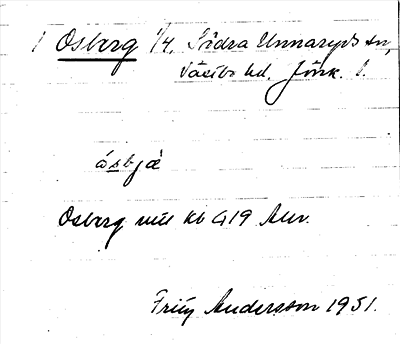 1 Osberg 1/4. Södra Unnaryds sn,
Västbo hd. Jönk. l.
åsbjä
Osberg mtl kb G19 Alw.
Fritz Andersson 1951.